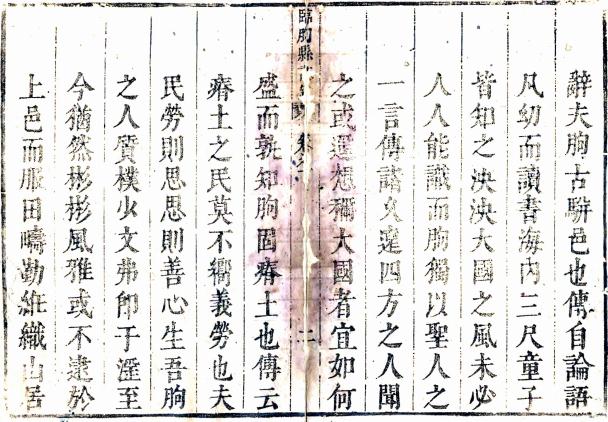 辭夫朐古駢邑也傳自論語
凡幼而讀書海内三尺童子
皆知之泱泱大國之風未必
人人能識而朐獨以聖人之
一言傳諸久遠四方之人聞
之或遥想稱大國者宜如何
臨朐縣
卷之
二
盛而孰知朐固瘠土也傳云
瘠土之民莫不嚮義勞也夫
民勞則思思則善心生吾朐
之人質樸少文弗卽于滛至
今猶然彬彬風雅或不逮於
上邑而服田疇勤維織山居